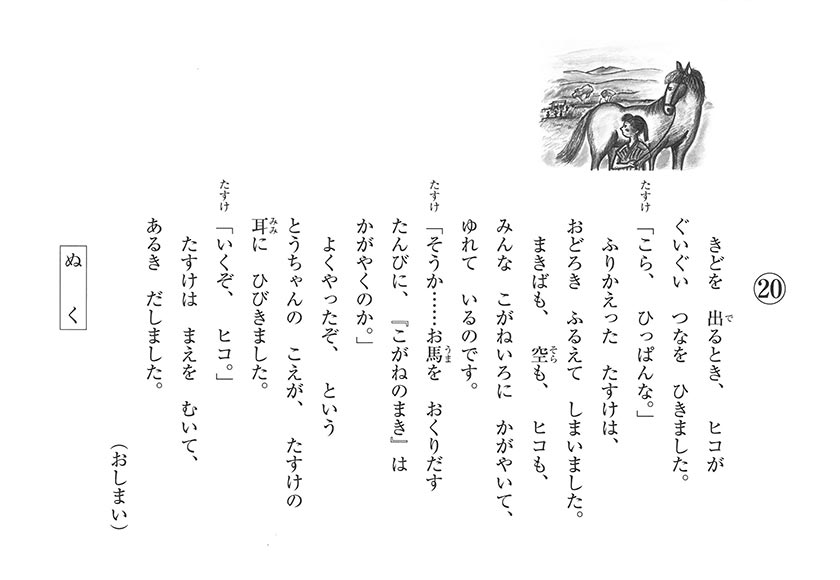 ⑳
きどを　出るとき、　ヒコが
ぐいぐい　つなを　ひきました。
たすけ「こら、　ひっぱんな。」
ふりかえった　たすけは、
おどろき　ふるえて　しまいました。
まきばも、　空も、　ヒコも、
みんな　こがねいろに　かがやいて、
ゆれて　いるのです。
たすけ「そうか……お馬を　おくりだす
たんびに、『こがねのまき』は
かがやくのか。」
よくやったぞ、　という
とうちゃんの　こえが、　たすけの
耳に　ひびきました。
たすけ「いくぞ、　ヒコ。」
たすけは　まえを　むいて、
あるき　だしました。
（おしまい）
ぬ　く